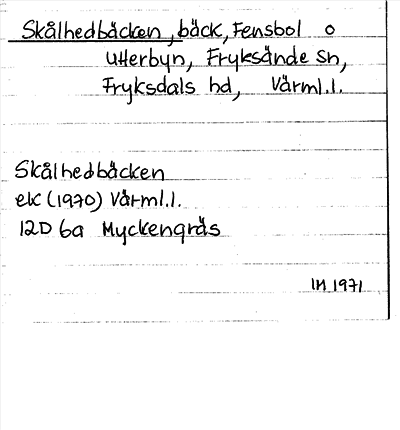 Skålhedbäcken, bäck, Fensbol o
Utterbyn, Fryksände sn,
Fryksdals hd, Värml.l.
Skålhedbäcken
ek (1970) Värml.l.
12D 6a Myckengräs
IH 1971